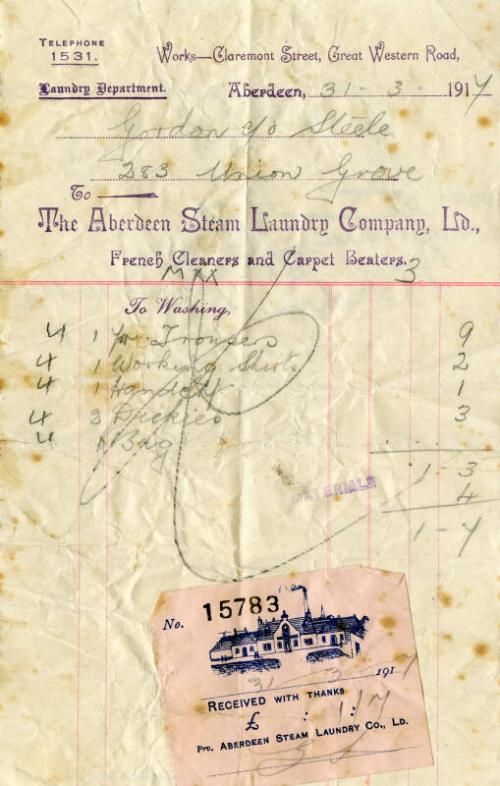 TELEPHONE
1531.
Works—Claremont Street, Great Western Road,
Laundry Department.
Aberdeen, 31 - 3 1917
Gordon c/o Steele
283 Union Grove
To
The Aberdeen Steam Laundry Company, Ld.,
French Cleaners and Carpet Beaters,
3
To Washing,
4 1 pr Trousers 9
4 1 Working Shirts 2
4 1 1
4 3 Dickies 3
4 1 Bag
1 - 3
MATERIALS
4
1 - 7
No. 15783
31 3 1917
RECEIVED WITH THANKS
£ : 1 : 7
PRO. ABERDEEN STEAM LAUNDRY CO., LD.